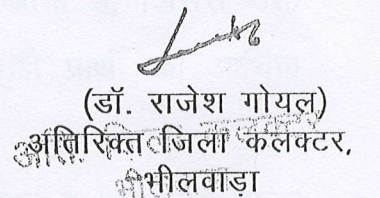 (डॉ. राजेश गोयल)
अतिरिक्त जिला कलेक्टर,
भीलवाड़ा